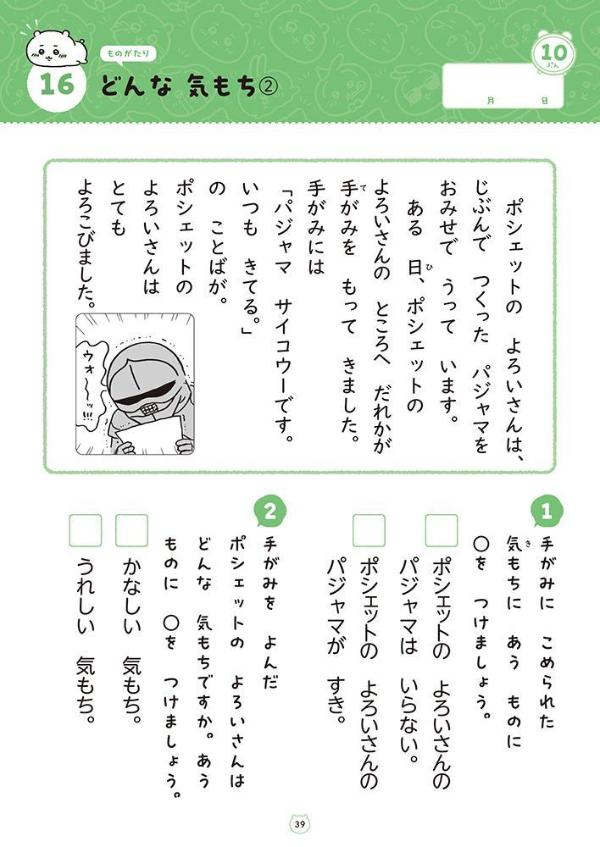 16
ものがたり
どんな 気もち②
10
ぷん
月 日
ポシェットの よろいさんは、
じぶんで つくった パジャマを
おみせで うって います。
ある 日、ポシェットの
ひ
よろいさんの ところへ だれかが
手がみを もって きました。
て
手がみには
「パジャマ サイコウーです。
いつも きてる。」
の ことばが。
ポシェットの
よろいさんは
とても
よろこびました。
ウォ〜〜ッ!!!
1
手がみに こめられた
気もちに あう ものに
き
〇を つけましょう。
ポシェットの よろいさんの
パジャマは いらない。
ポシェットの よろいさんの
パジャマが すき。
2
手がみを よんだ
ポシェットの よろいさんは
どんな 気もちですか。あう
ものに 〇を つけましょう。
かなしい 気もち。
うれしい 気もち。
39